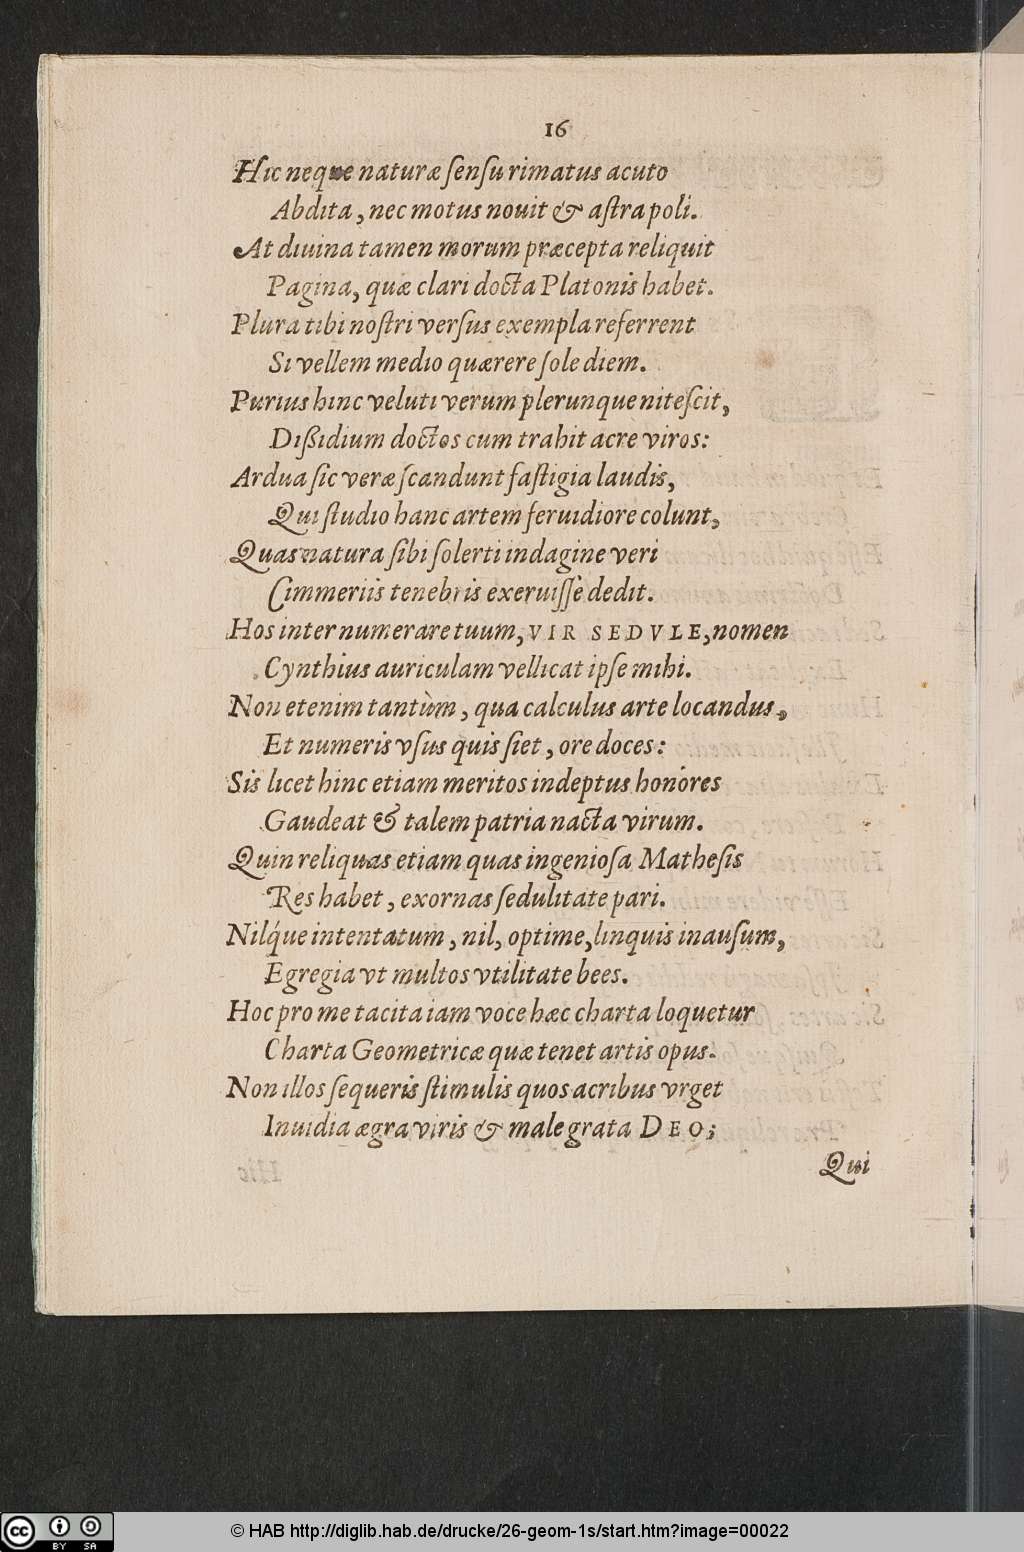 16
Hic neque naturæ ſenſu rimatus acuto
Abdita, nec motus nouit & aſtra poli.
At diuina tamen morum præcepta reliquit
Pagina, quæ clari docta Platonis habet.
Plura tibi noſtri verſus exempla referrent
Si vellem medio quærere ſole diem.
Purius hinc veluti verum plerunque niteſcit,
Dißidium doctos cum trahit acre viros:
Ardua ſic veræ ſcandunt faſtigia laudis,
Qui ſtudio hanc artem feruidiore colunt,
Quas natura ſibi ſolerti indagine veri
Cimmeriis tenebris exeruiſſe dedit.
Hos inter numerare tuum, VIR SEDVLE, nomen
Cynthius auriculam vellicat ipſe mihi.
Non etenim tantùm, qua calculus arte locandus,
Et numeris vſus quis ſiet, ore doces:
Sis licet hinc etiam meritos indeptus honores
Gaudeat & talem patria nacta virum.
Quin reliquas etiam quas ingenioſa Matheſis
Res habet, exornas ſedulitate pari.
Nilq́ue intentatum, nil, optime, linquis inauſum,
Egregia vt multos vtilitate bees.
Hoc pro me tacita iam voce hæc charta loquetur
Charta Geometricæ quæ tenet artis opus.
Non illos ſequeris ſtimulis quos acribus vrget
Inuidia ægra viris & male grata DEO;
Qui
cc BY SA
© HAB http://diglib.hab.de/drucke/26-geom-1s/start.htm?image=00022